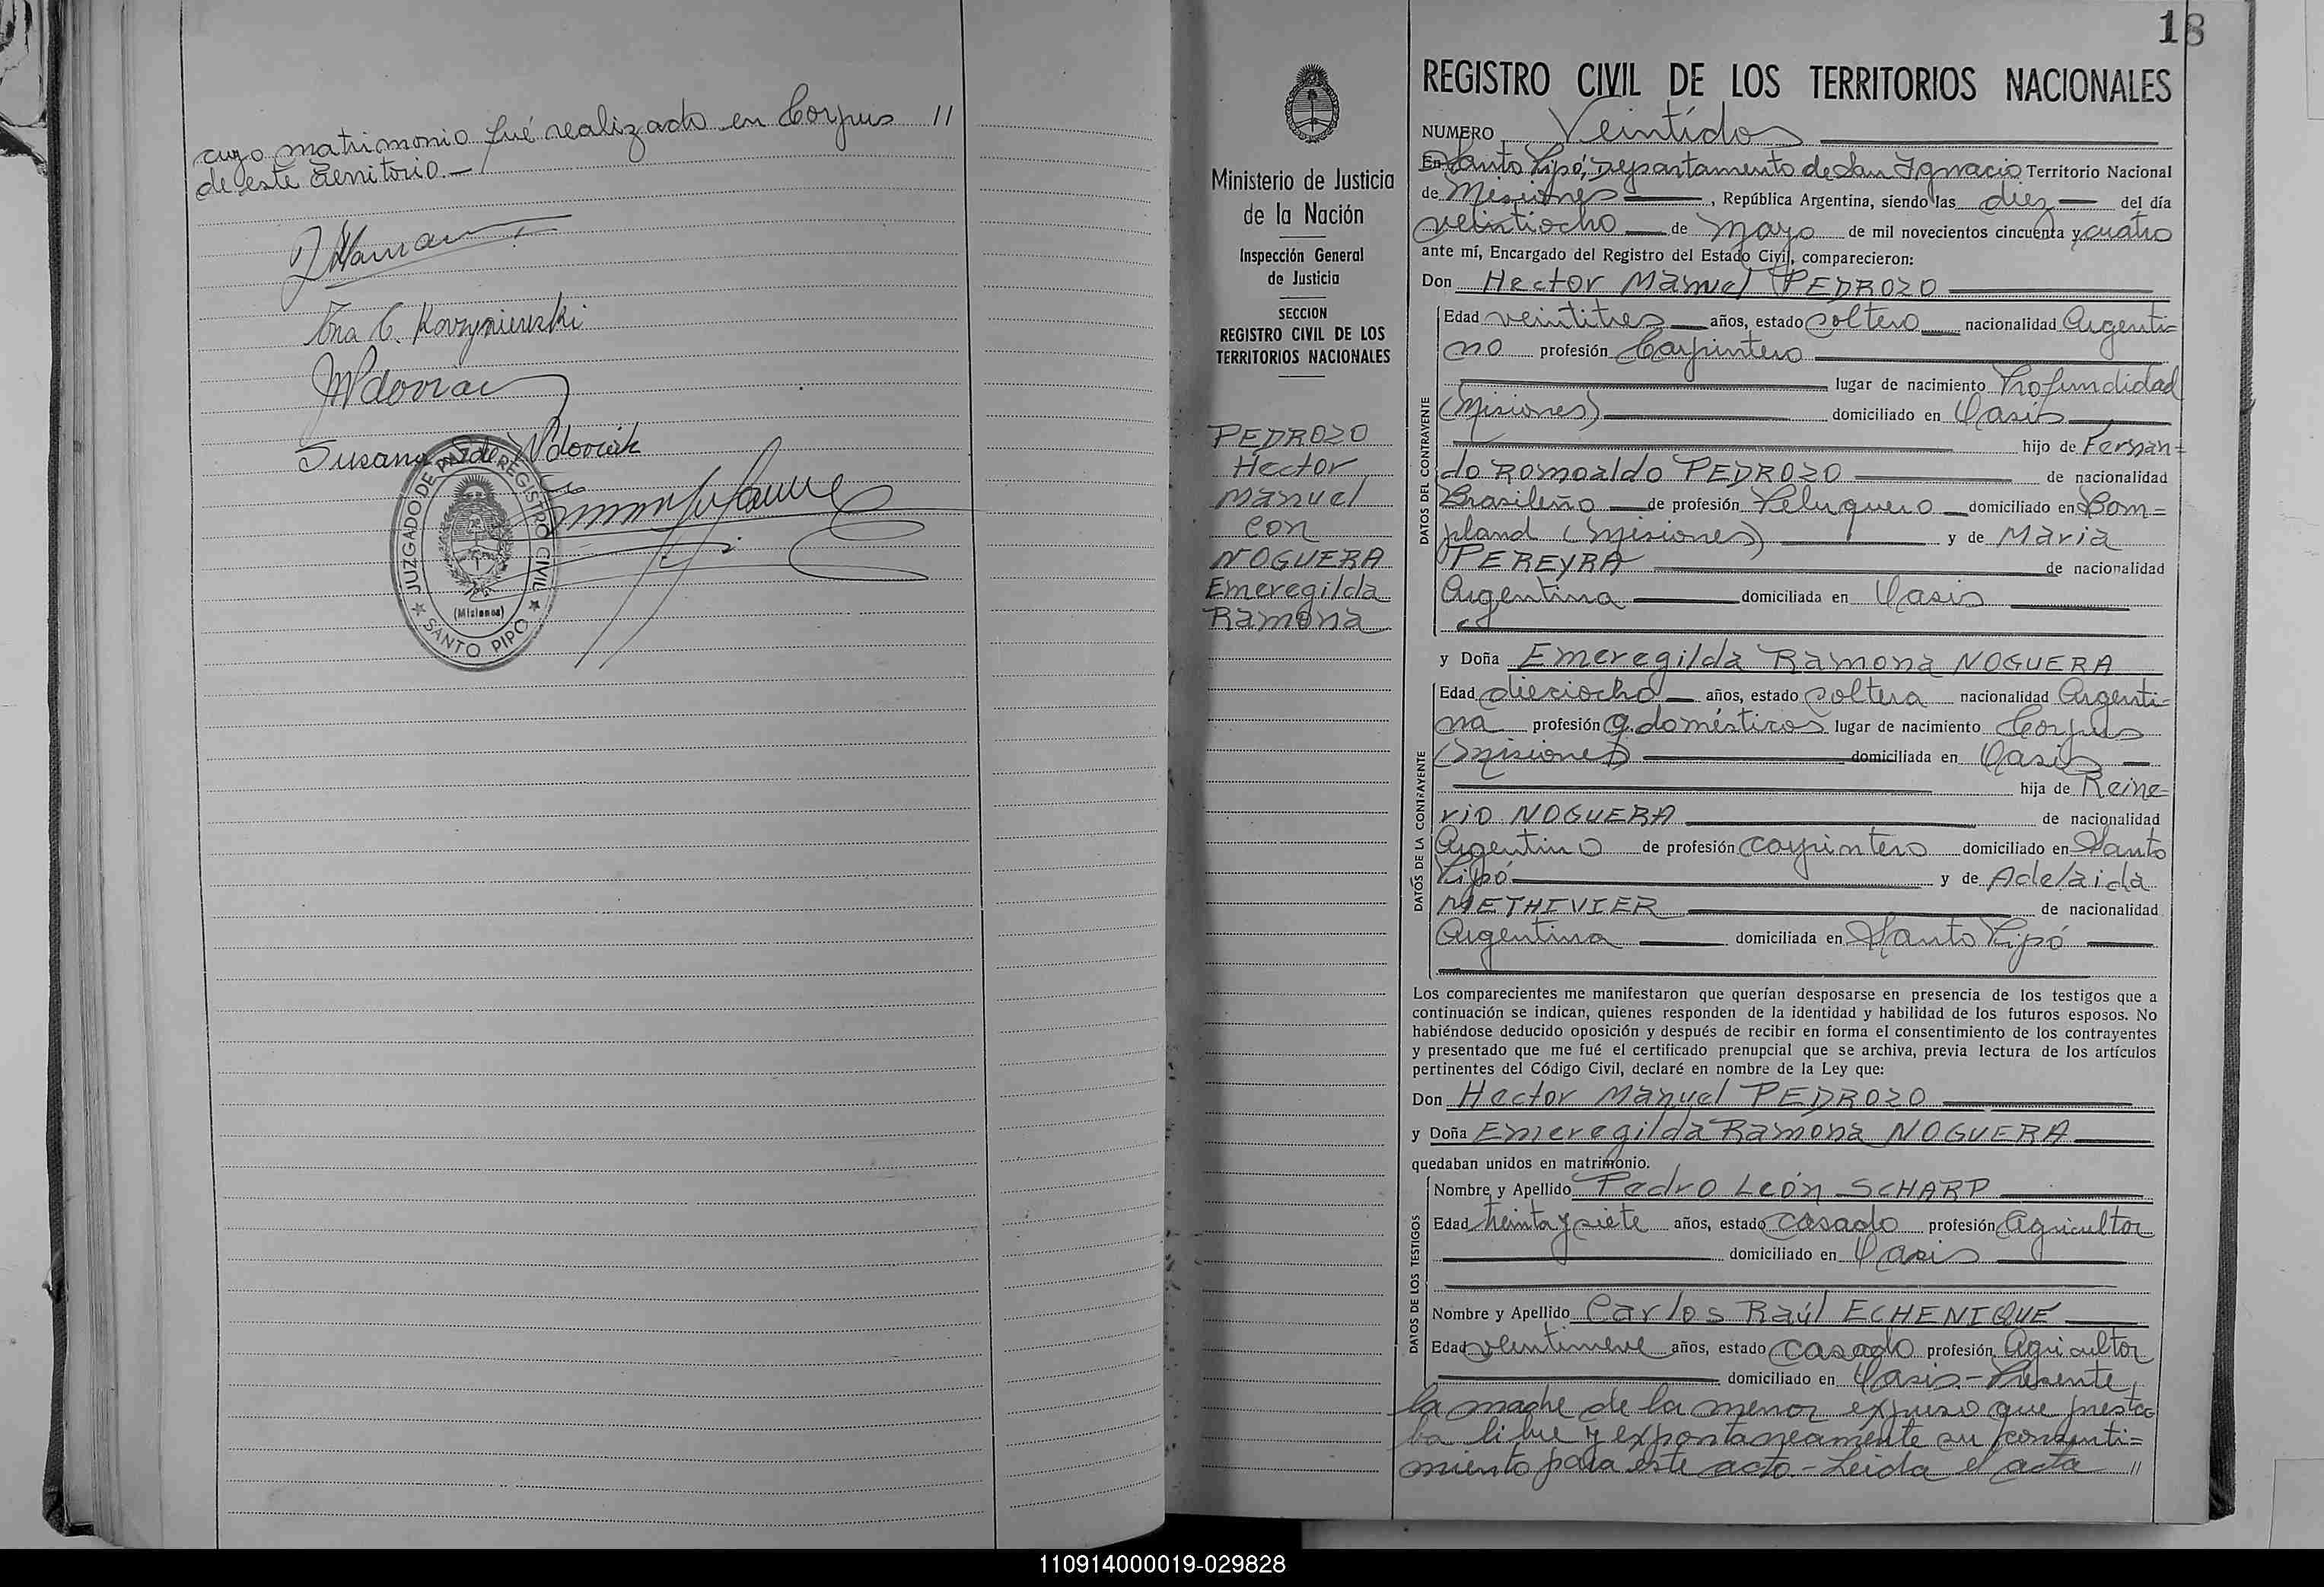 cuyo matrimonio fué realizado en Corpus //
de este Territorio.-
Ana C. Korzyniewski
Susana S de Wdoviak
JUZGADO DE PAZ Y REGISTRO CIVIL
(Misiones)
SANTO PIPO
18
REGISTRO CIVIL DE LOS TERRITORIOS NACIONALES
Ministerio de Justicia
de la Nación
Inspección General
de Justicia
SECCION
REGISTRO CIVIL DE LOS
TERRITORIOS NACIONALES
PEDROZO
Hector
Manuel
con
NOGUERA
Emeregilda
Ramona
NUMERO Veintidos
En Santo Pipó, Departamento de San Ignacio Territorio Nacional
de Misiones, República Argentina, siendo las diez del día
veintiocho de Mayo de mil novecientos cincuenta y cuatro
ante mí, Encargado del Registro del Estado Civil, comparecieron:
Don Hector Manuel PEDROZO
DATOS DEL CONTRAYENTE
Edad veintitres años, estado soltero nacionalidad Argenti=
no profesión Carpintero
lugar de nacimiento Profundidad
(Misiones) domiciliado en Oasis
hijo de Fernan=
do Romoaldo PEDROZO de nacionalidad
Brasileño de profesión Peluquero domiciliado en Bom=
pland (Misiones) y de Maria
PEREYRA de nacionalidad
Argentina domiciliada en Oasis
y Doña Emeregilda Ramona NOGUERA
DATOS DE LA CONTRAYENTE
Edad dieciocho años, estado soltera nacionalidad Argenti=
na profesión q. domésticos lugar de nacimiento Corpus
(Misiones) domiciliada en Oasis
hija de Reine=
rio NOGUERA de nacionalidad
Argentino de profesión carpintero domiciliado en Santo
Pipó y de Adelaida
METHIVIER de nacionalidad
Argentina domiciliada en Santo Pipó
Los comparecientes me manifestaron que querían desposarse en presencia de los testigos que a
continuación se indican, quienes responden de la identidad y habilidad de los futuros esposos. No
habiéndose deducido oposición y después de recibir en forma el consentimiento de los contrayentes
y presentado que me fué el certificado prenupcial que se archiva, previa lectura de los artículos
pertinentes del Código Civil, declaré en nombre de la Ley que:
Don Hector Manuel PEDROZO
y Doña Emeregilda Ramona NOGUERA
quedaban unidos en matrimonio.
DATOS DE LOS TESTIGOS
Nombre y Apellido Pedro León SCHARP
Edad treinta y siete años, estado casado profesión Agricultor
domiciliado en Oasis
Nombre y Apellido Carlos Raúl ECHENIQUE
Edad veintinueve años, estado casado profesión Agricultor
domiciliado en Oasis.- Presente
la madre de la menor expuso que presta=
ba libre y expontaneamente su consenti=
miento para este acto.- Leida el acta //
110914000019-029828